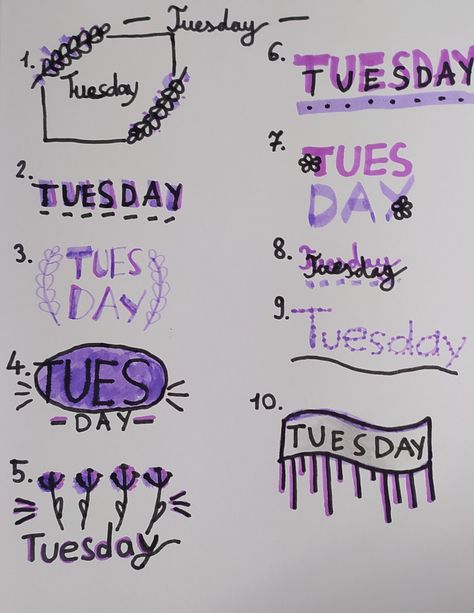 Tuesday
1.
Tuesday
2.
TUESDAY
3.
TUES
DAY
4.
TUES
DAY
5.
Tuesday
6.
TUESDAY
7.
TUES
DAY
8.
Tuesday
9.
Tuesday
10.
TUESDAY